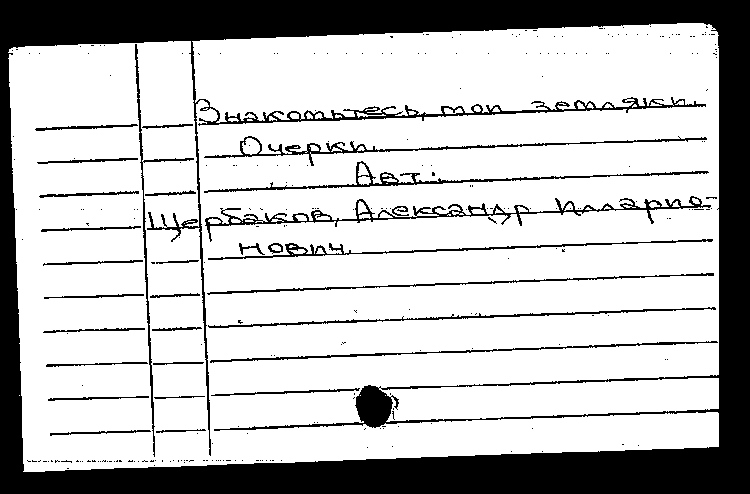 Знакомьтесь, мои земляки.
Очерки.
Авт.:
Щербаков, Александр Илларио-
нович.